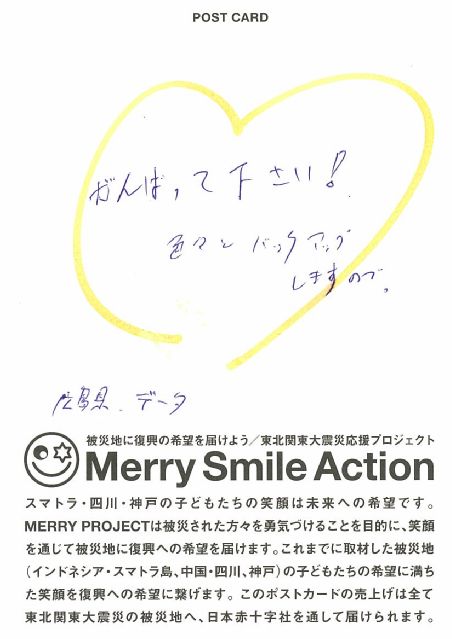 POST CARD
がんばって下さい!
色々とバックアップ
しますので。
広島県、データ
被災地に復興の希望を届けよう/東北関東大震災応援プロジェクト
Merry Smile Action
スマトラ・四川・神戸の子どもたちの笑顔は未来への希望です。
MERRY PROJECTは被災された方々を勇気づけることを目的に、笑顔
を通じて被災地に復興への希望を届けます。これまでに取材した被災地
(インドネシア・スマトラ島、中国・四川、神戸)の子どもたちの希望に満ち
た笑顔を復興への希望に繋げます。このポストカードの売上げは全て
東北関東大震災の被災地へ、日本赤十字社を通して届けられます。